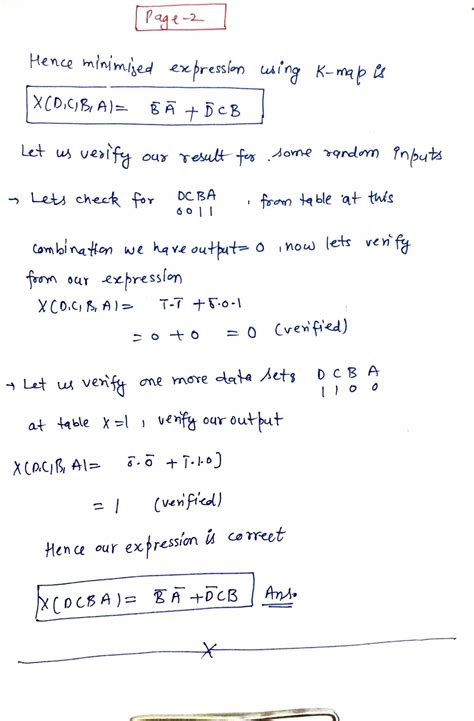 Page-2
Hence minimized expression using K-map is
X(D,C,B,A)= B̅ A̅ + D̅CB
Let us verify our result for some random inputs
→ Lets check for DCBA , from table at this
0011
combination we have output=0 , now lets verify
from our expression
X(D,C,B,A)= 1̅·1̅ + 0̅·0·1
= 0 + 0 = 0 (verified)
→ Let us verify one more data sets D C B A
1 1 0 0
at table X=1 , verify our output
X(D,C,B,A)= 0̅·0̅ + 1̅·1·0)
= 1 (verified)
Hence our expression is correct
X(DCBA)= B̅ A̅ + D̅CB Ans.
X